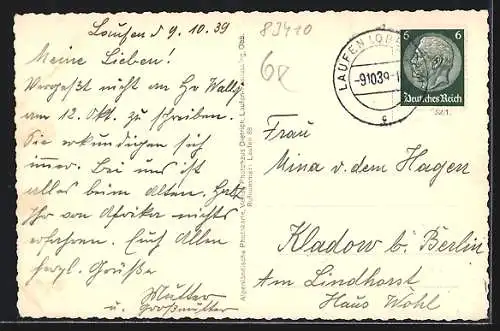 Laufen d 9.10.39
Meine Lieben!
Vergeßt nicht an Hr Wally
am 12. Okt. zu schreiben.
Sie erkundigen sich
immer. Bei uns ist
alles beim Alten. Habt
Ihr von Afrika nichts
erfahren. Euch Allen
herzl. Grüße
Mutter
u. Großmutter
83410
6e
LAUFEN (OBERBAY
-9.10.39.-1
c
6 6
Deutsches Reich
Frau
Mina v. dem Hagen
Kladow b. Berlin
Am Lindhorst
Haus Wohl